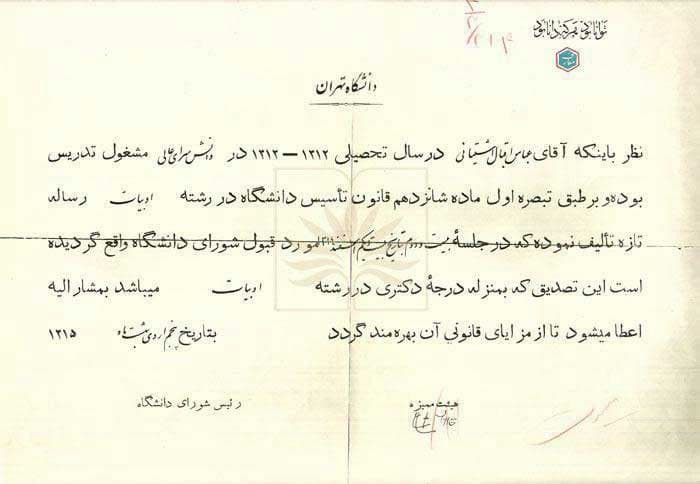 توانا بود هر که دانا بود
دانشگاه تهران
نظر باینکه آقای عباس اقبال آشتیانی در سال تحصیلی ۱۳۱۲ – ۱۳۱۳ در دانش سرای عالی مشغول تدریس
بوده و بر طبق تبصره اول ماده شانزدهم قانون تأسیس دانشگاه در رشته ادبیات رساله
تازه تألیف نموده که در جلسهٔ بیست و دوم بتاریخ مورد قبول شورای دانشگاه واقع گردیده
است این تصدیق که بمنزله درجهٔ دکتری در رشته ادبیات میباشد بمشار الیه
اعطا میشود تا از مزایای قانونی آن بهره مند گردد بتاریخ پنجم اردیبهشت ماه ۱۳۱۵
هیئت ممیزه
رئیس شورای دانشگاه